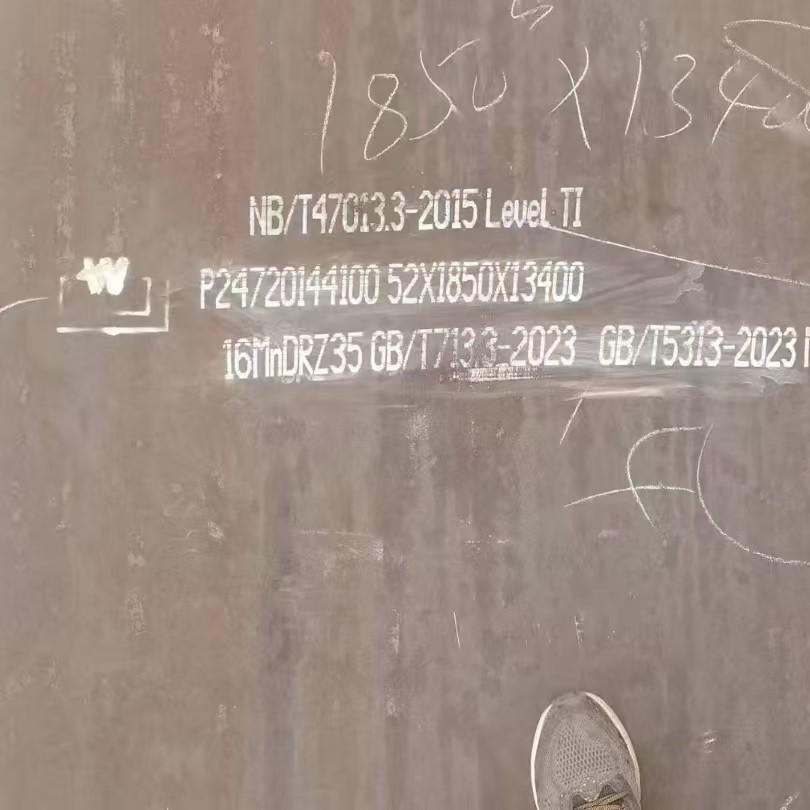 1850 X 13400
NB/T47013.3-2015 Level TI
W
P24720144100 52X1850X13400
16MnDRZ35 GB/T713.3-2023 GB/T5313-2023